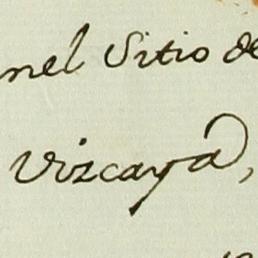 nel Sitio de
Vizcaya,